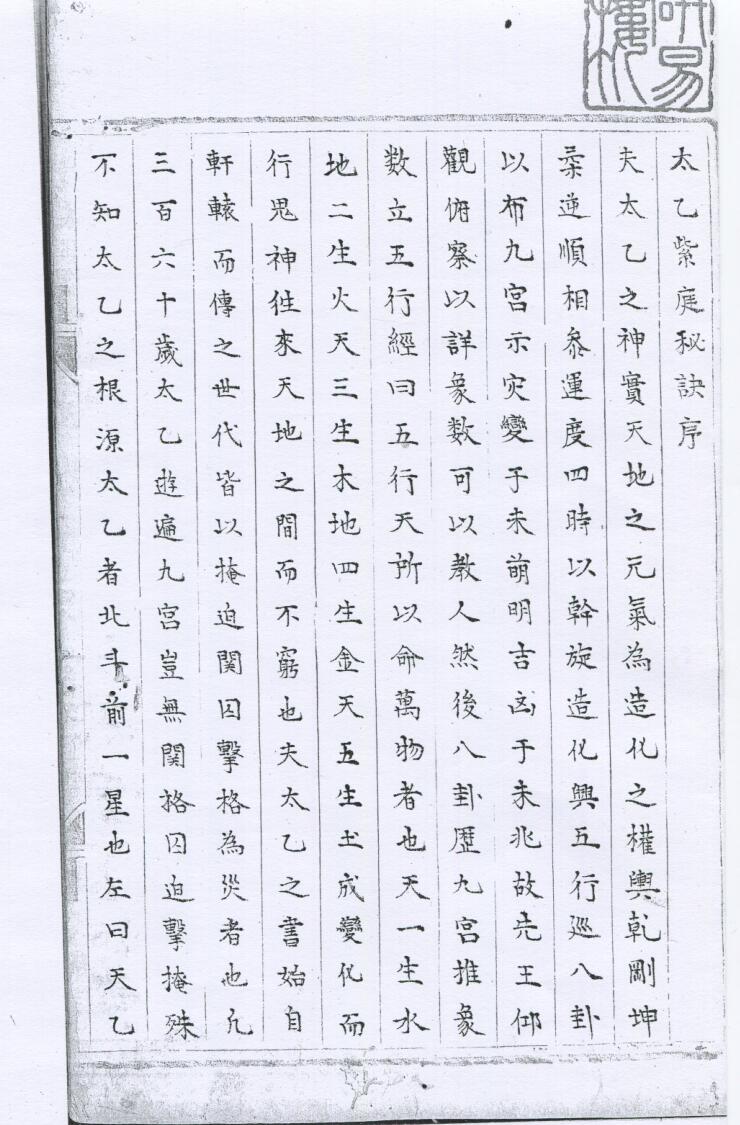 太乙紫庭秘訣序
夫太乙之神實天地之元氣為造化之權輿乾剛坤
柔逆順相叅運度四時以幹旋造化興五行廵八卦
以布九宮示灾變于未萌明吉凶于未兆故先王仰
觀俯察以詳象数可以教人然後八卦歴九宮推象
数立五行經曰五行天所以命萬物者也天一生水
地二生火天三生木地四生金天五生土成變化而
行鬼神徃來天地之間而不窮也夫太乙之書始自
軒轅而傳之世代皆以掩迫関囚擊格為災者也凢
三百六十歲太乙遊遍九宮豈無関格囚迫擊掩殊
不知太乙之根源太乙者北斗前一星也左曰天乙